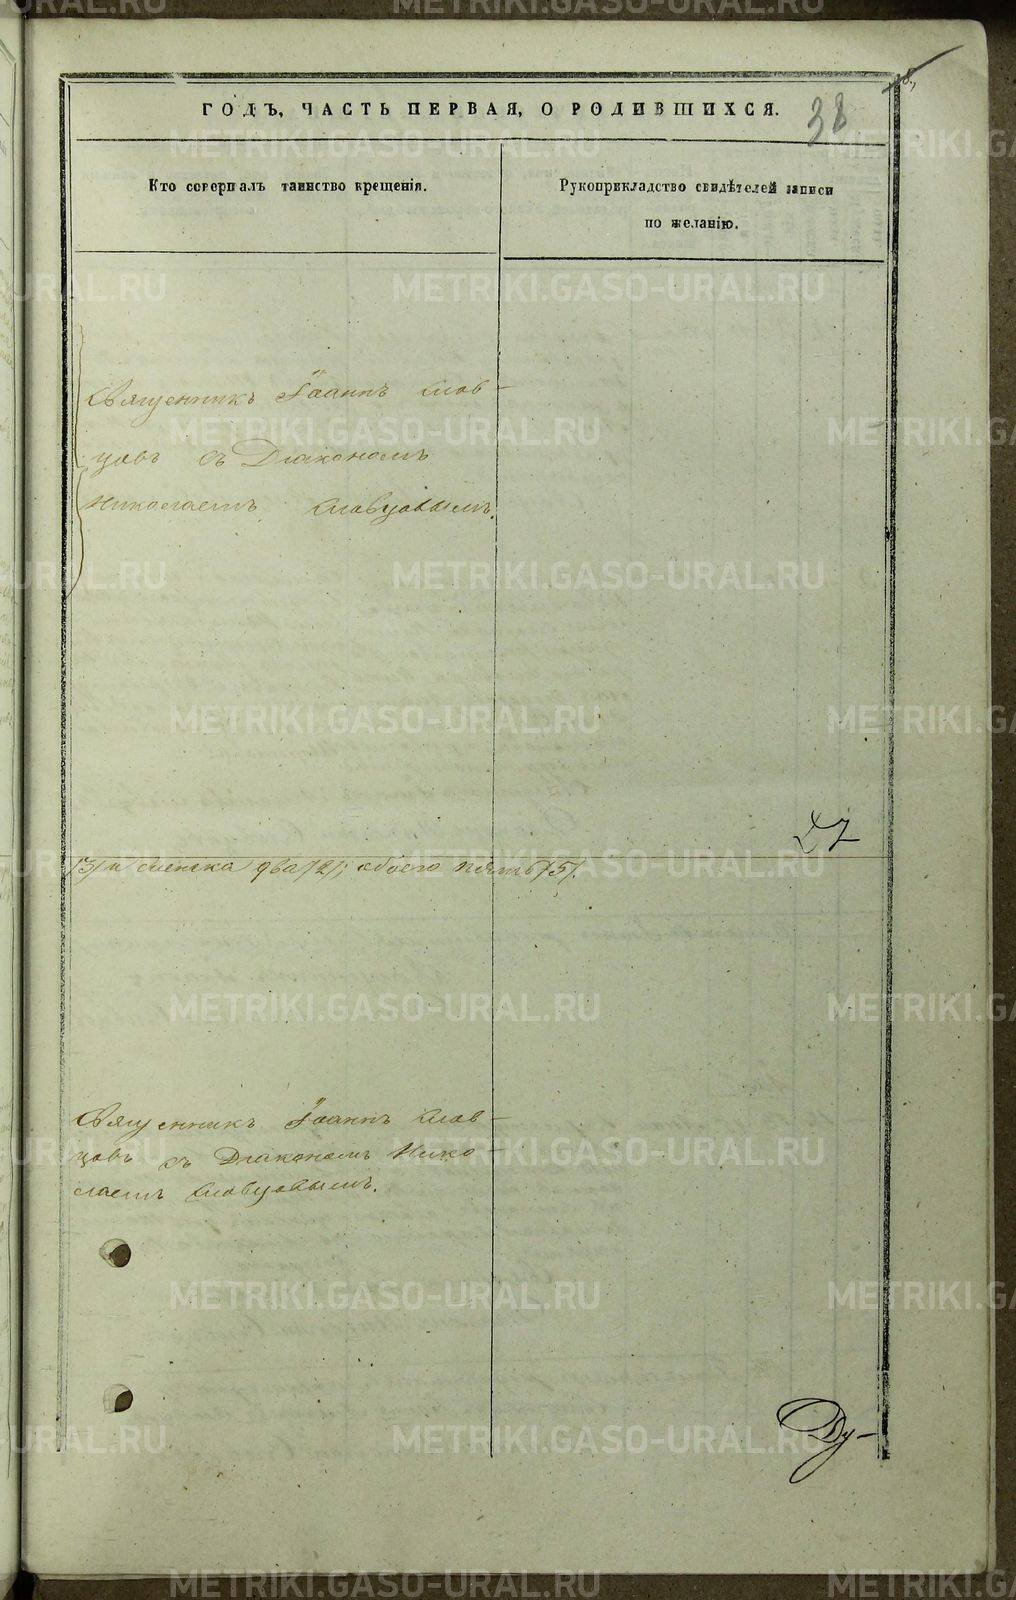 ГОДЪ, ЧАСТЬ ПЕРВАЯ, О РОДИВШИХСЯ.
38
Кто совершалъ таинство крещенія.
Рукоприкладство свидѣтелей записи
по желанію.
Священникъ Іоаннъ Слов-
цовъ съ Діакономъ
Николаемъ Словцовымъ.
/3/ и женска два /2/; обоего пять /5/.
Священникъ Іоаннъ Слов-
цовъ съ Діакономъ Нико-
лаемъ Словцовымъ.
Ду-
METRIKI.GASO-URAL.RU